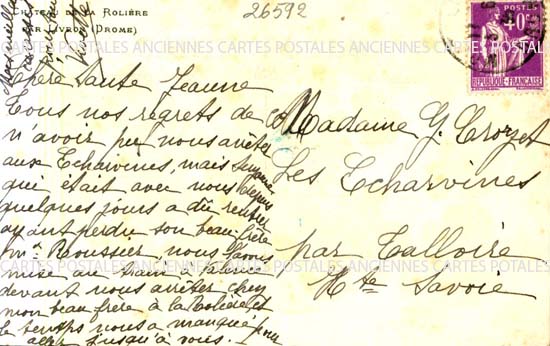 26592
CHATEAU DE LA ROLIÈRE
PAR LIVRON (DROME)
POSTES
40c
REPUBLIQUE-FRANÇAISE
CARTES POSTALES ANCIENNES CARTES POSTALES ANCIENNES CARTES POSTALES
Chère tante Jeanne
Tous nos regrets de
n'avoir pu nous arrêter
aux Echarvines, mais
qui était avec nous depuis
quelques jours a dû rentrer
ayant perdu son beau frère
Mr Roussier nous l'avons
mise au train à Valence
devant nous arrêter chez
mon beau frère à la Rolière et
le temps nous a manqué pour
aller jusqu'à vous.
Madame G. Crozet
Les Echarvines
par Talloire
Hte Savoie